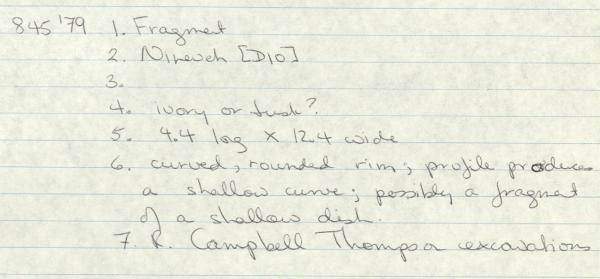 845 '79 1. Fragment
2. Nineveh [D10]
3.
4. ivory or tusk?
5. 4.4 long x 12.4 wide
6. curved, rounded rim; profile produces
a shallow curve; possibly a fragment
of a shallow dish.
7. R. Campbell Thompson excavations